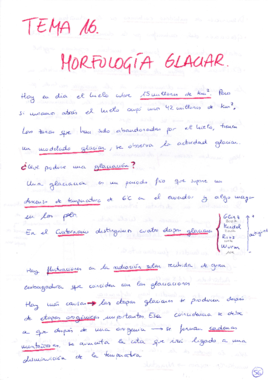 TEMA 16.
MORFOLOGÍA GLACIAR.
Hoy en día el hielo cubre 15 millones de km². Pero
si miramos atrás el hielo ocupó unos 42 millones de km²,
Las zonas que han sido abandonadas por el hielo, tienen
un modelado glaciar, se observa la actividad glaciar.
¿Qué produce una glaciación?
Una glaciación es un periodo frío que supone un
descenso de temperatura de 6°C en el mundo y algo mayor
en los polos.
En el Cuaternario distinguimos cuatro etapas glaciares
Günz
Mindel
Riss
Würm
Hay fluctuaciones en la radiación solar recibida de gran
envergadura que coinciden con las glaciaciones
Hay más causas → las etapas glaciares se producen después
de etapas orogénicas importantes. Esa coincidencia se debe
a que después de una orogenia → se forma cadenas
montañosas se aumenta la cota que está ligado a una
disminución de la temperatura